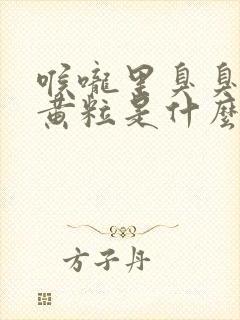 喉嚨里臭臭
黄粒是什麽
方子丹